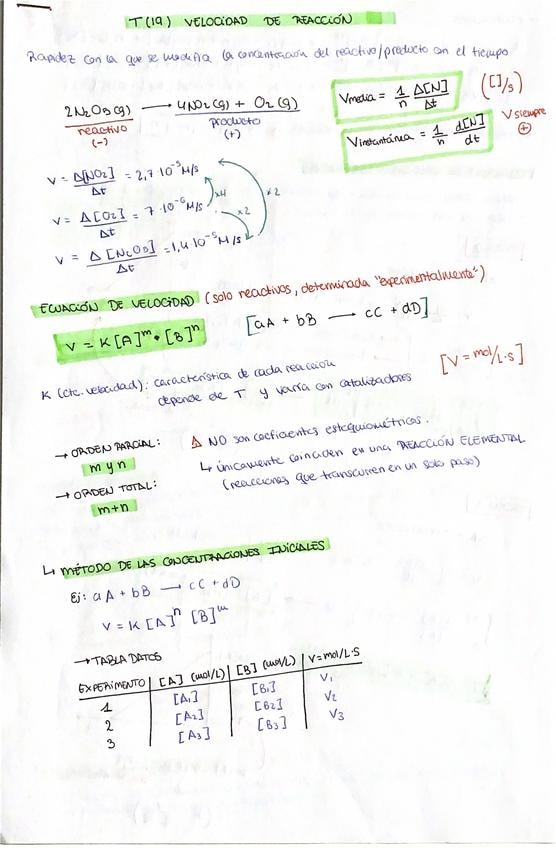 T(19) VELOCIDAD DE REACCIÓN
Rapidez con la que se modifica la concentración del reactivo/producto con el tiempo
2N₂O₅(g) ⟶ 4NO₂(g) + O₂(g)
reactivo producto
(-) (+)
Vmedia = 1/n Δ[N]/Δt ([]/s)
Vinstantánea = 1/n d[N]/dt
V siempre
⊕
v = Δ[NO₂]/Δt = 2,7·10⁻⁵ M/s
v = Δ[O₂]/Δt = 7·10⁻⁶ M/s
v = Δ[N₂O₅]/Δt = 1,4·10⁻⁵ M/s
x4
x2
x2
ECUACIÓN DE VELOCIDAD (solo reactivos, determinada "experimentalmente")
V = K[A]ᵐ·[B]ⁿ [aA + bB ⟶ cC + dD]
K (cte. velocidad): característica de cada reacción [V = mol/L·s]
depende de T y varía con catalizadores
→ ORDEN PARCIAL: ⚠ NO son coeficientes estequiométricos.
m y n ↳ únicamente coinciden en una REACCIÓN ELEMENTAL
→ ORDEN TOTAL: (reacciones que transcurren en un solo paso)
m+n
↳ MÉTODO DE LAS CONCENTRACIONES INICIALES
Ej: aA + bB ⟶ cC + dD
v = K[A]ⁿ [B]ᵐ
→ TABLA DATOS
EXPERIMENTO [A] (mol/L) [B] (mol/L) V=mol/L·S
1 [A₁] [B₁] V₁
2 [A₂] [B₂] V₂
3 [A₃] [B₃] V₃